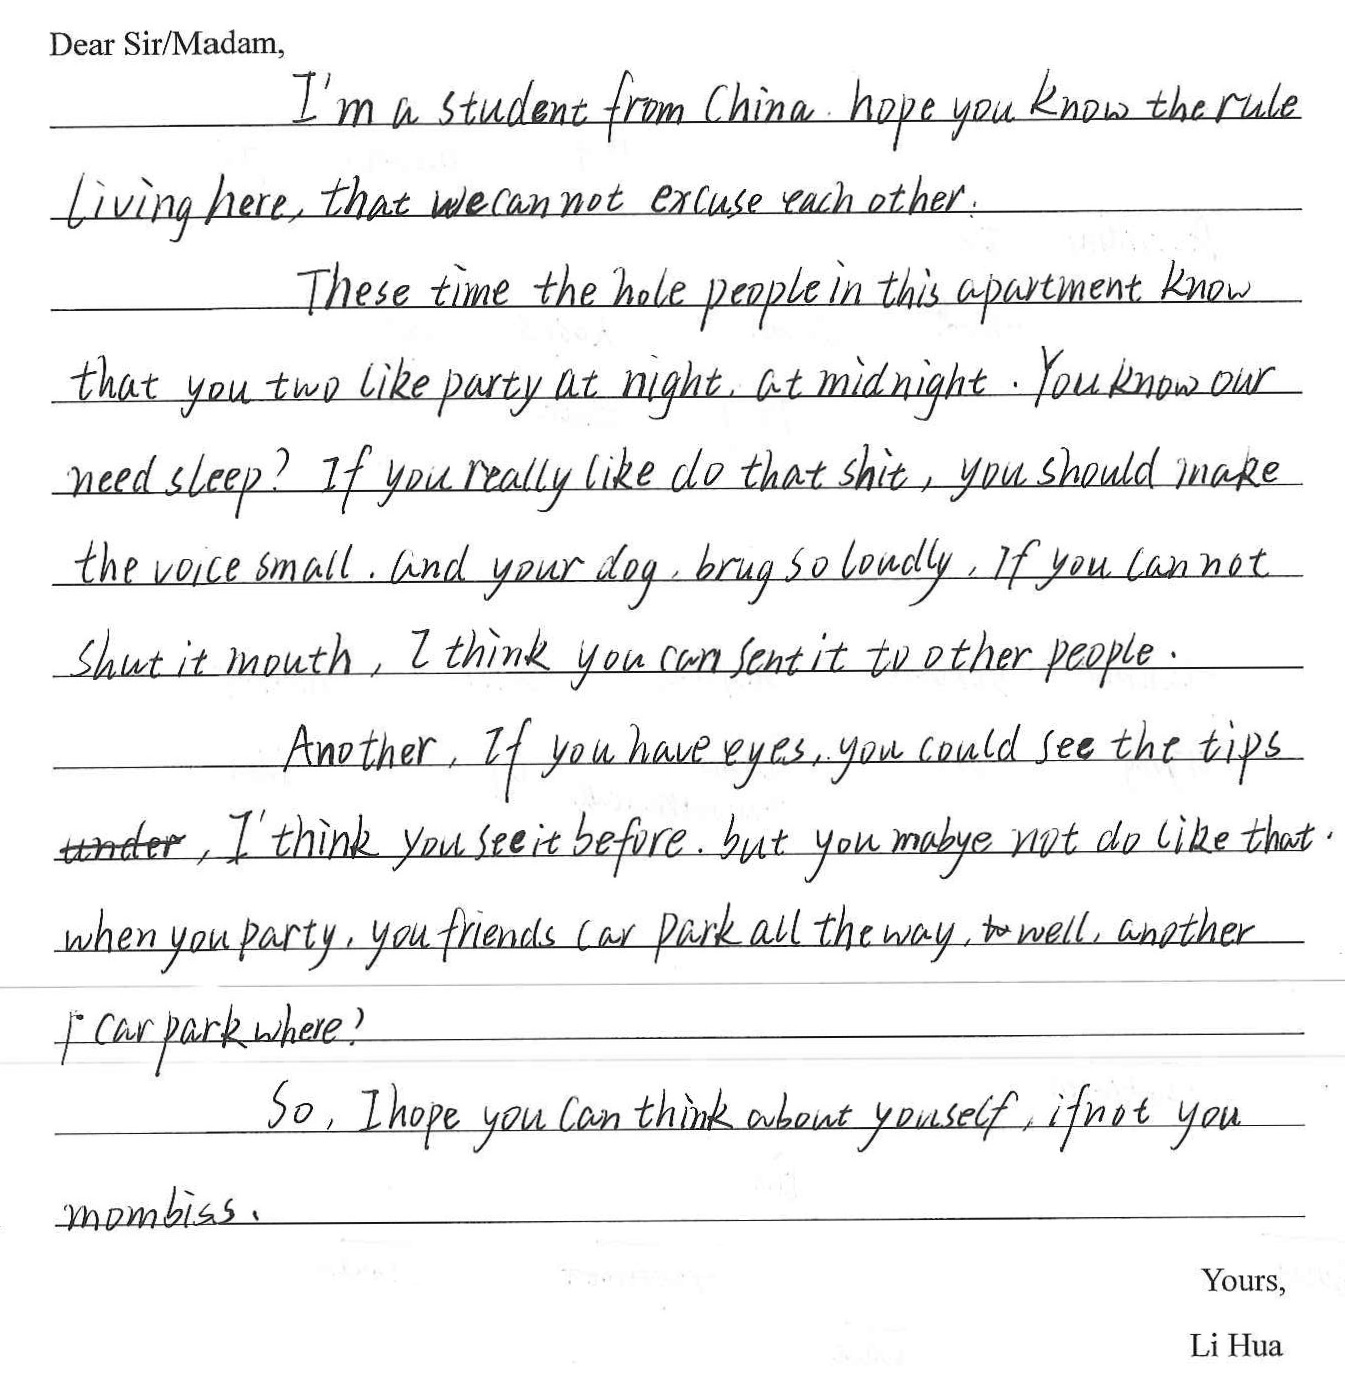 Dear Sir/Madam,
I'm a student from China. hope you know the rule
living here, that we can not excuse each other.
These time the hole people in this apartment know
that you two like party at night. at midnight. You know our
need sleep? If you really like do that shit, you should make
the voice small. and your dog. brug so loudly. If you can not
shut it mouth, I think you can sent it to other people.
Another, If you have eyes, you could see the tips
under, I' think you see it before. but you mabye not do like that.
when you party, you friends car park all the way, well, another
car park where?
So, I hope you can think about youself, if not you
mombiss.
Yours,
Li Hua